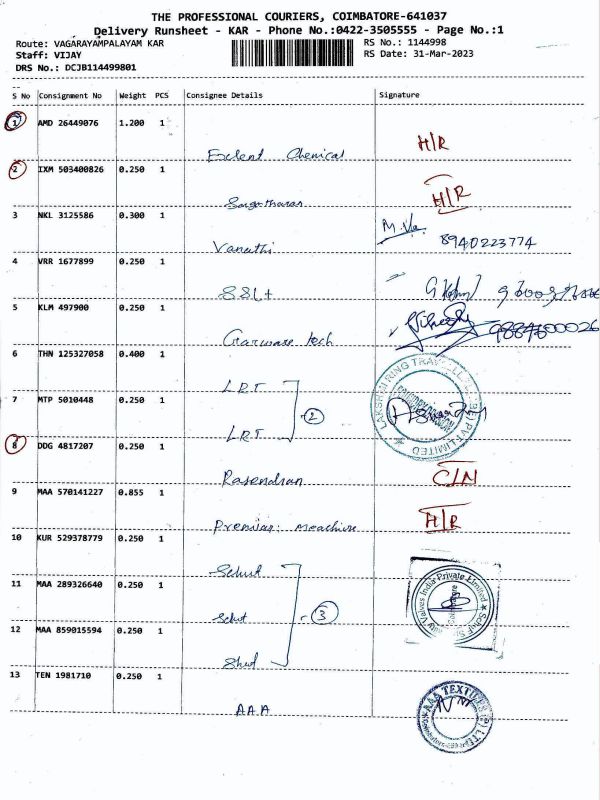 THE PROFESSIONAL COURIERS, COIMBATORE-641037
Delivery Runsheet - KAR - Phone No.:0422-3505555 - Page No.:1
Route: VAGARAYAMPALAYAM KAR
RS No.: 1144998
Staff: VIJAY
RS Date: 31-Mar-2023
DRS No.: DCJB114499801
S No Consignment No Weight PCS Consignee Details Signature
1 AMD 26449076 1.200 1
Exlent Chemical H/R
2 IXM 503400826 0.250 1
H/R
3 NKL 3125586 0.300 1
Vanathi 8940223774
4 VRR 1677899 0.250 1
SSL+
5 KLM 497900 0.250 1
Garware tech
6 THN 125327058 0.400 1
LRT
7 MTP 5010448 0.250 1
LRT 2
LAKSHMI RING TRAVELLERS (CBE) PVT LIMITED
8 DDG 4817207 0.250 1
Rasendran C/N
9 MAA 570141227 0.855 1
Premier meachine H/R
10 KUR 529378779 0.250 1
Schuf
11 MAA 289326640 0.250 1
Schuf 3
Valves India Private Limited
12 MAA 859015594 0.250 1
13 TEN 1981710 0.250 1
AAA
AAA TEXTILES (P) LTD